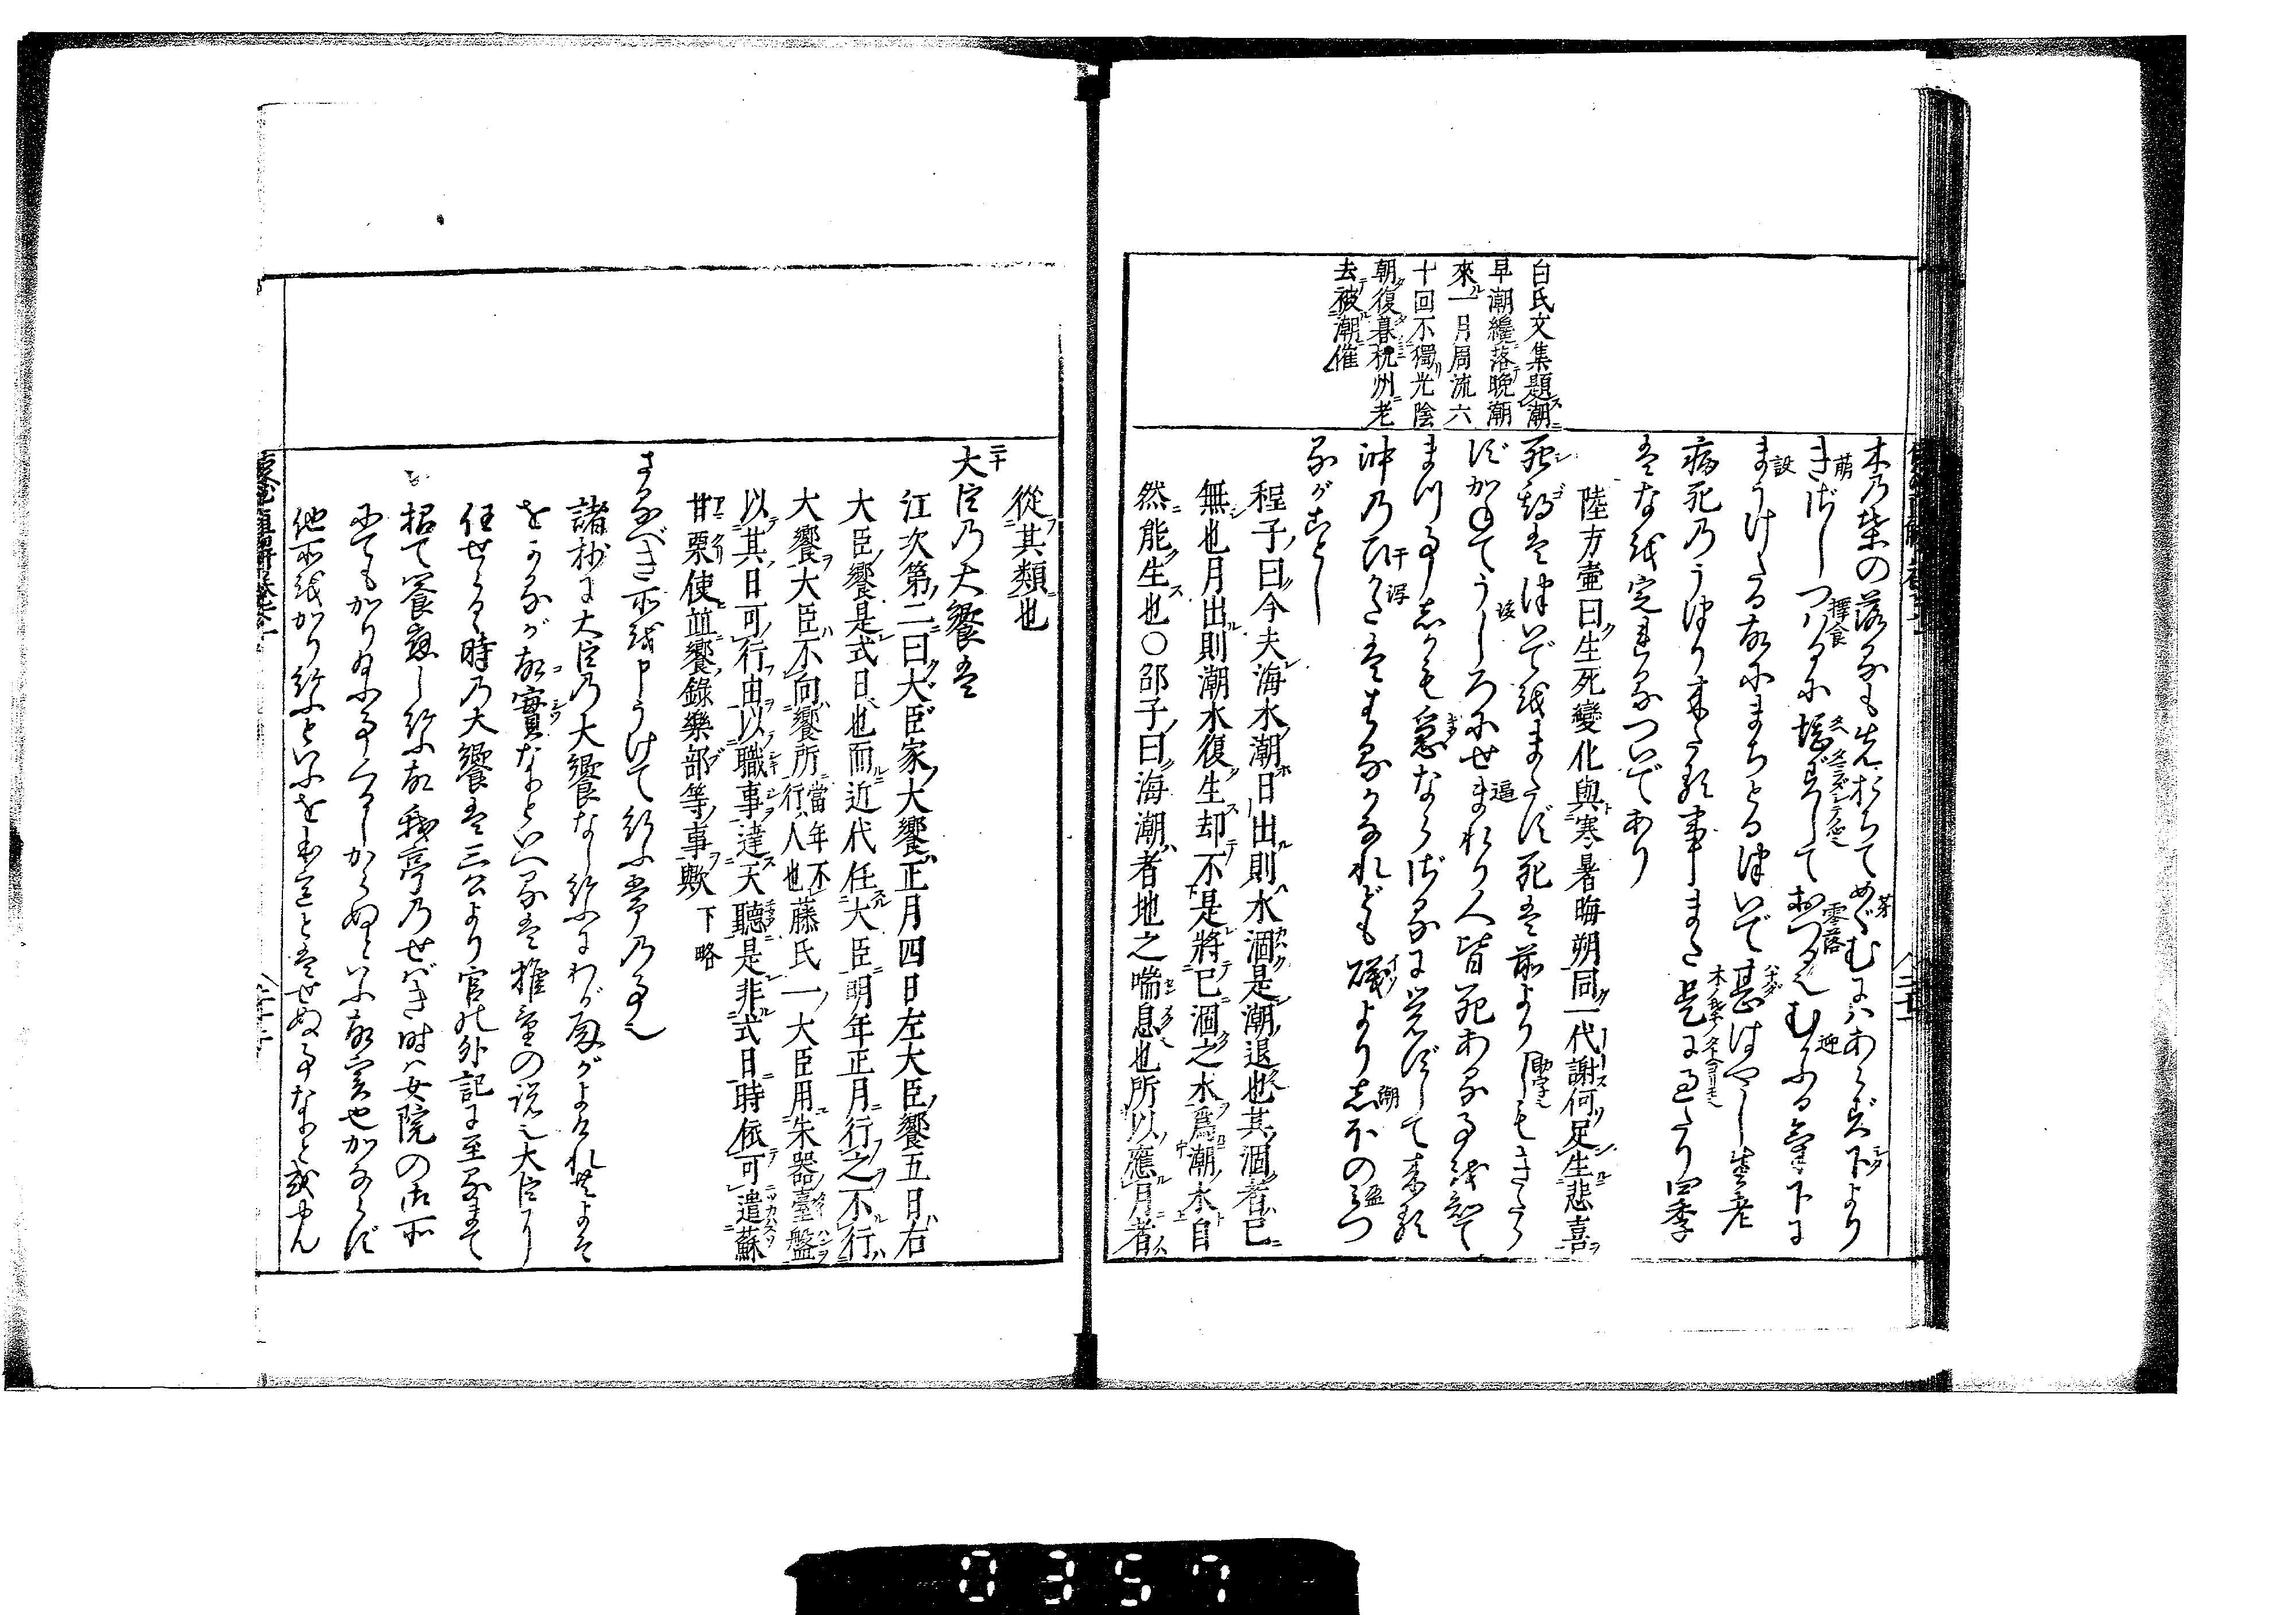 白氏文集題潮
早潮纔落晩潮
來一月周流六
十回不獨光陰
朝復暮杭州老
去被潮催
木乃葉の落るも先おちてめぐむにはあらず下より
きざしつはるに堪ずしておつる也むかふる氣下に
まうけたる故にまちとる次いで甚はやし生老
病死乃うつり來たる事また是に過たり四季
はなを定まれるついであり
陸方壷曰生死變化與寒暑晦朔同一代謝何足生悲喜
死期は次いでをまたず死は前よりしもきたら
ずかねてうしろにせまれり人皆死ある事を知て
まつ事しかも急ならざるに覚ずして来る
沖乃ひかたはるかなれども磯より志ほの満つ
るがごとし
程子曰今夫海水潮日出則水涸是潮退也其涸者已
無也月出則潮水復生却不是將已涸之水爲潮水自
然能生也〇邵子曰海潮者地之喘息也所以應月者
從其類也
三十
大臣乃大饗は
江次第二曰大臣家大饗正月四日左大臣饗五日右
大臣饗是式日也而近代任大臣明年正月行之不行
大饗大臣不向饗所當年不行人也藤氏一大臣用朱器臺盤
以其日可行由以職事達天聽是非式日時依可遣蘇
甘栗使並饗錄樂部等事歟下略
さるべき所を申うけて行ふ常乃事也
諸抄に大臣乃大饗なし給ふにわが家がよけれ共よそ
をかるが故實なりといへるは推量の説也大臣に
任せらる時乃大饗は三公より官の外記に至るまで
招て饗應し給ふ故我亭乃せばき時は女院の御所
にてもかり給ふ事くるしからぬといふ故實也かならず
他所をかり給ふといふを